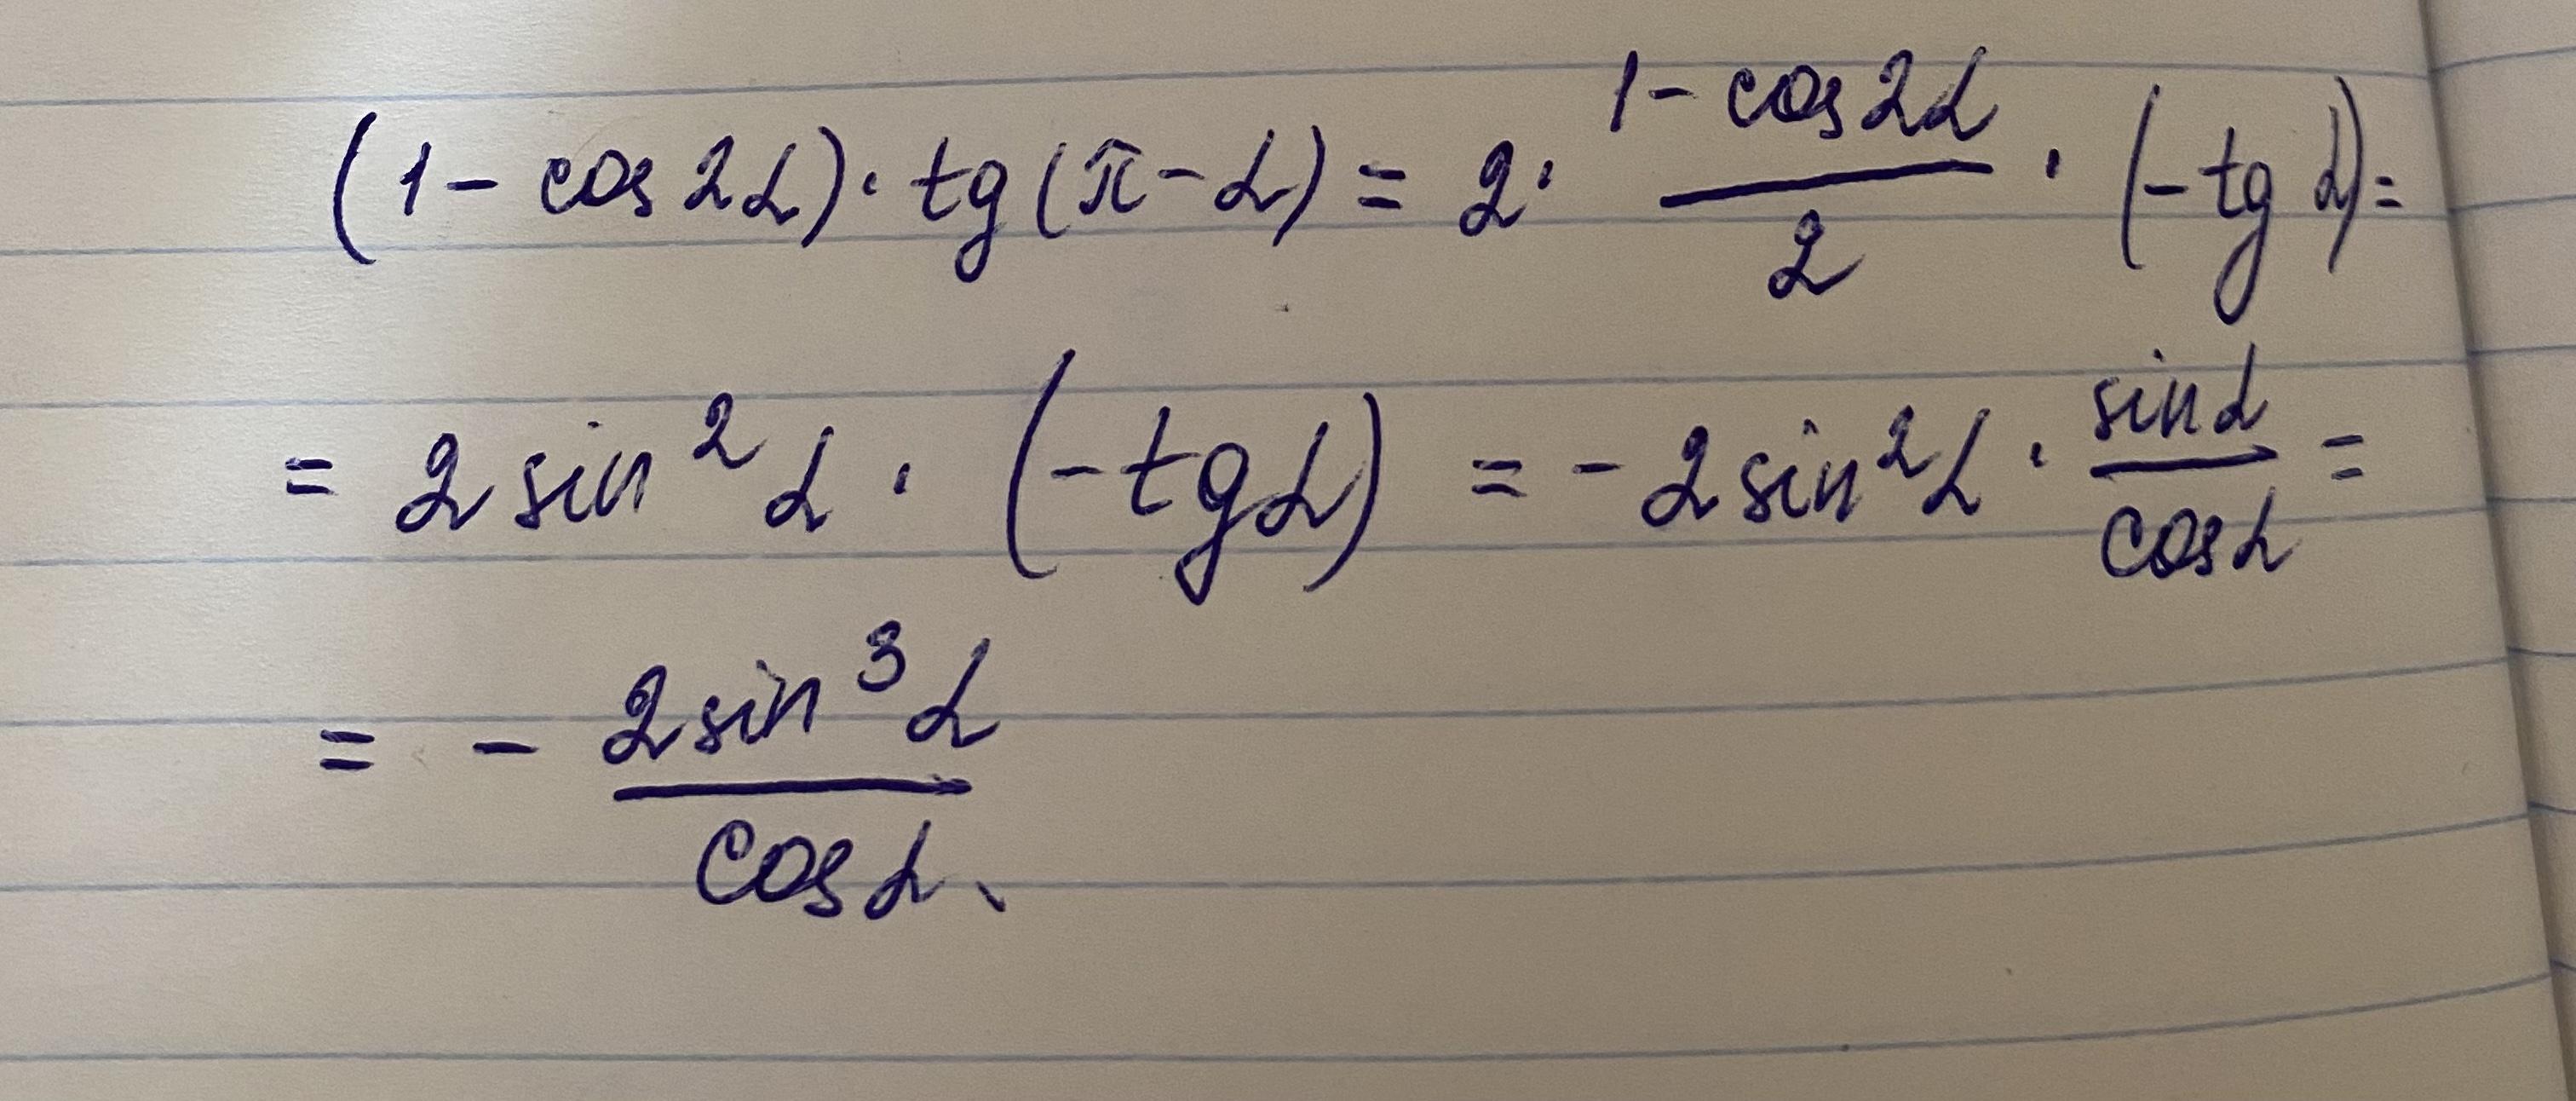 (1 - cos 2α) · tg(π - α) = 2 · (1 - cos 2α)/2 · (-tg α) =
= 2 sin² α · (-tg α) = - 2 sin² α · sin α/cos α =
= - 2 sin³ α/cos α.